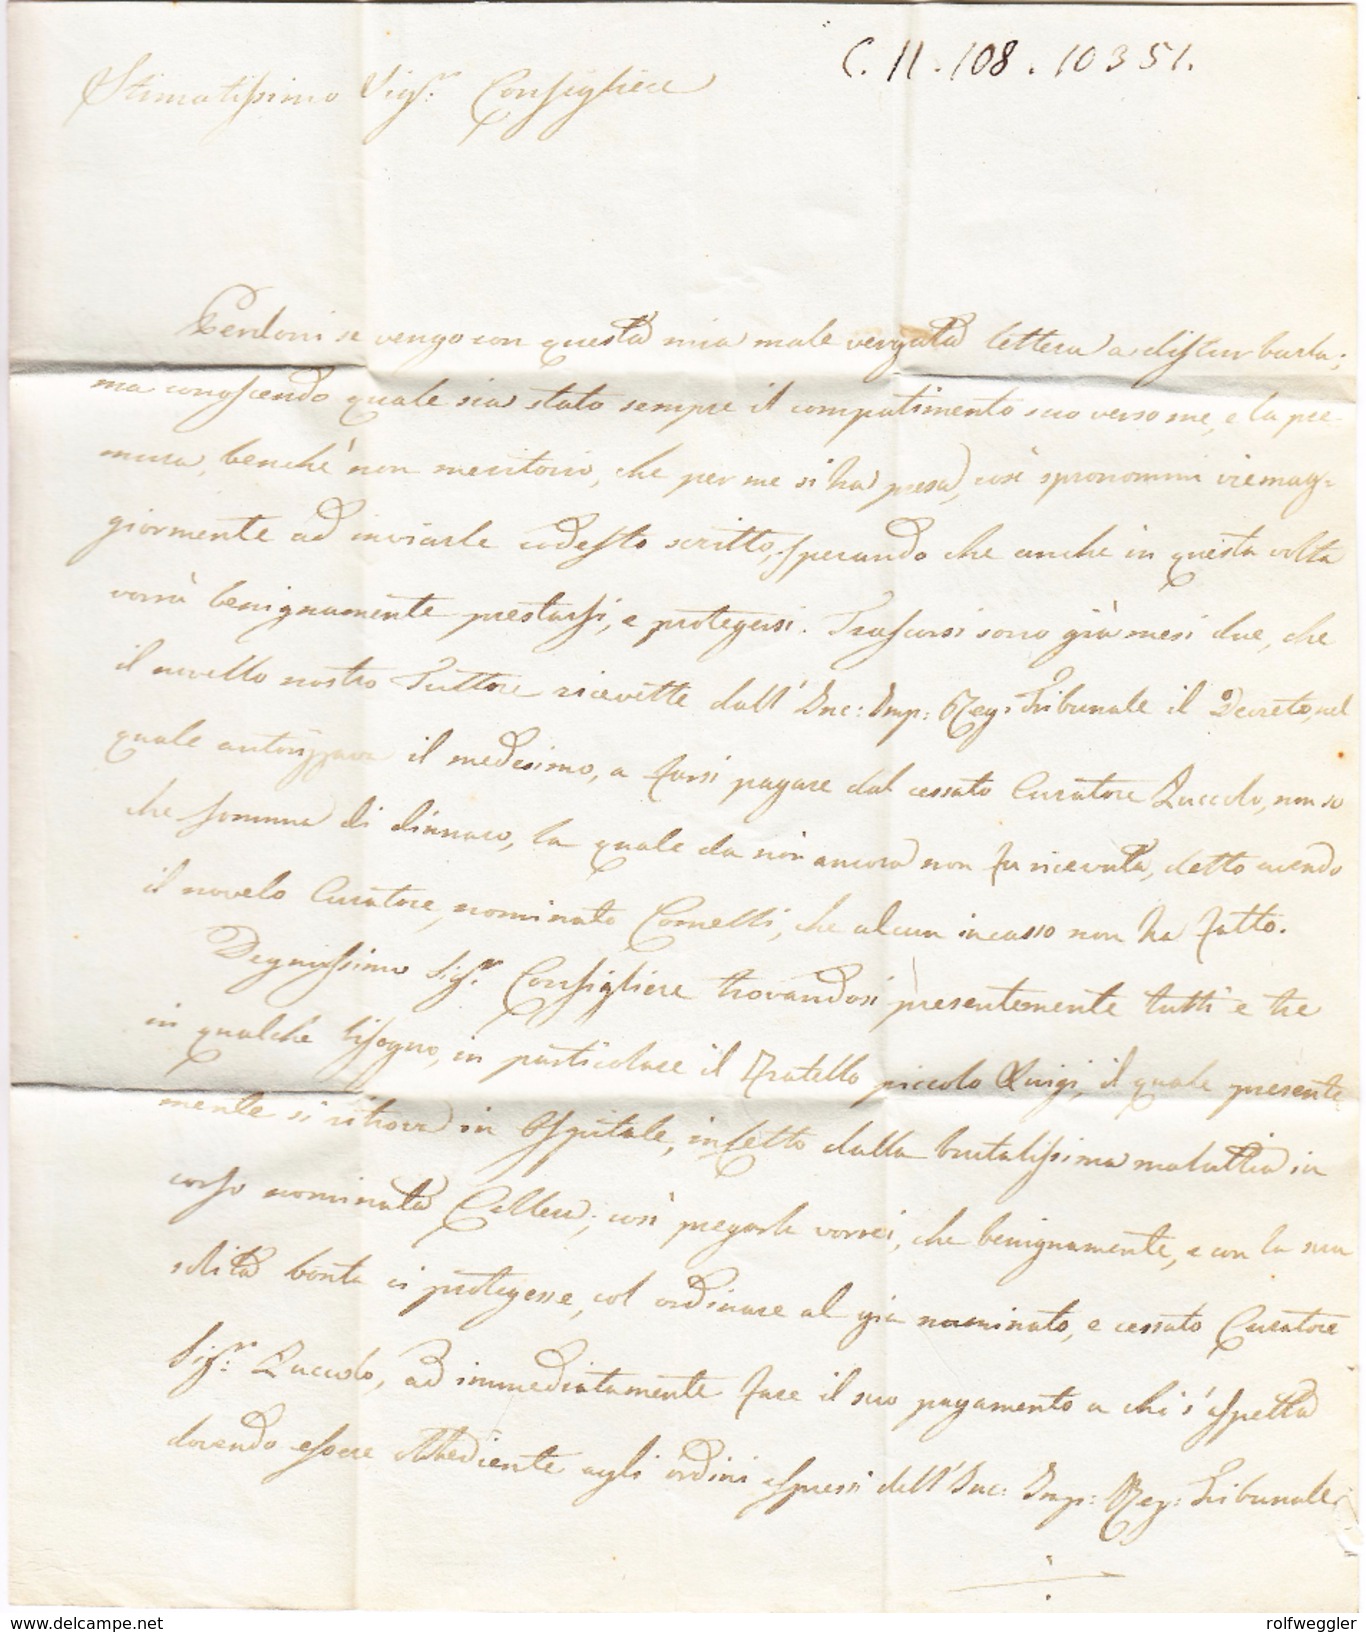 C. 11. 108. 10351.
Stimatissimo Sigr. Consigliere
Perdoni se vengo con questa mia male vergata lettera a disturbarla;
ma conoscendo quale sia stato sempre il compatimento suo verso me, e la pre-
mura, benchè non meritorio, che per me si ha presa, così spronommi viemag-
giormente ad inviarle codesto scritto, sperando che anche in questa volta
vorrà benignamente prestarsi, e protegersi. Trascorsi sono già mesi due, che
il novello nostro Tuttore ricevette dall' Inc: Imp: Reg: Tribunale il Decreto, nel
quale autorizzava il medesimo, a farsi pagare dal cessato Curatore Zuccolo, non so
che somma di dinnaro, la quale da noi ancora non fu ricevuta, detto avendo
il novelo Curatore, nominato Comelli, che alcun incasso non ha fatto.
Degnissimo Sigr. Consigliere trovandosi presentemente tutti e tre
in qualche bisogno, in particolare il Fratello piccolo Luigi, il quale presente-
mente si ritrova in Ospitale, infetto dalla brutalissima malattia in
corso nominata Collera; così pregarla vorrei, che benignamente, e con la sua
solita bontà ci protegesse, col ordinare al già nominato, e cessato Curatore
Sigr. Zuccolo, ad immediatamente fare il suo pagamento a chi s'aspetta
dovendo essere obbediente agli ordini espressi dell' Inc: Imp: Reg: Tribunale
www.delcampe.net
rolfweggler